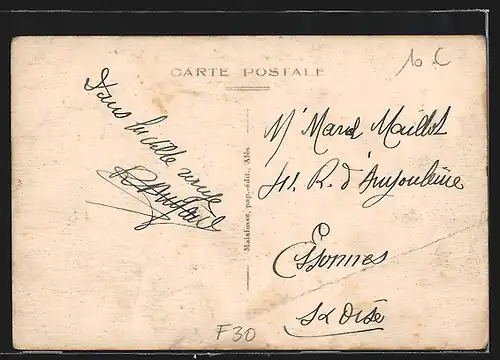 CARTE POSTALE
10 C
Dans la ville
Malafosse, pap.-édit., Alès
Mr Marcel Maillot
41. R. d'Angoulême
Essonnes
S & Oise
F30